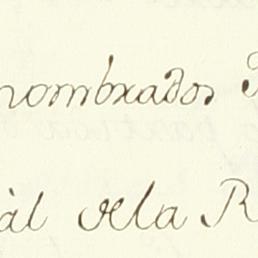 nombrados
àl dela R